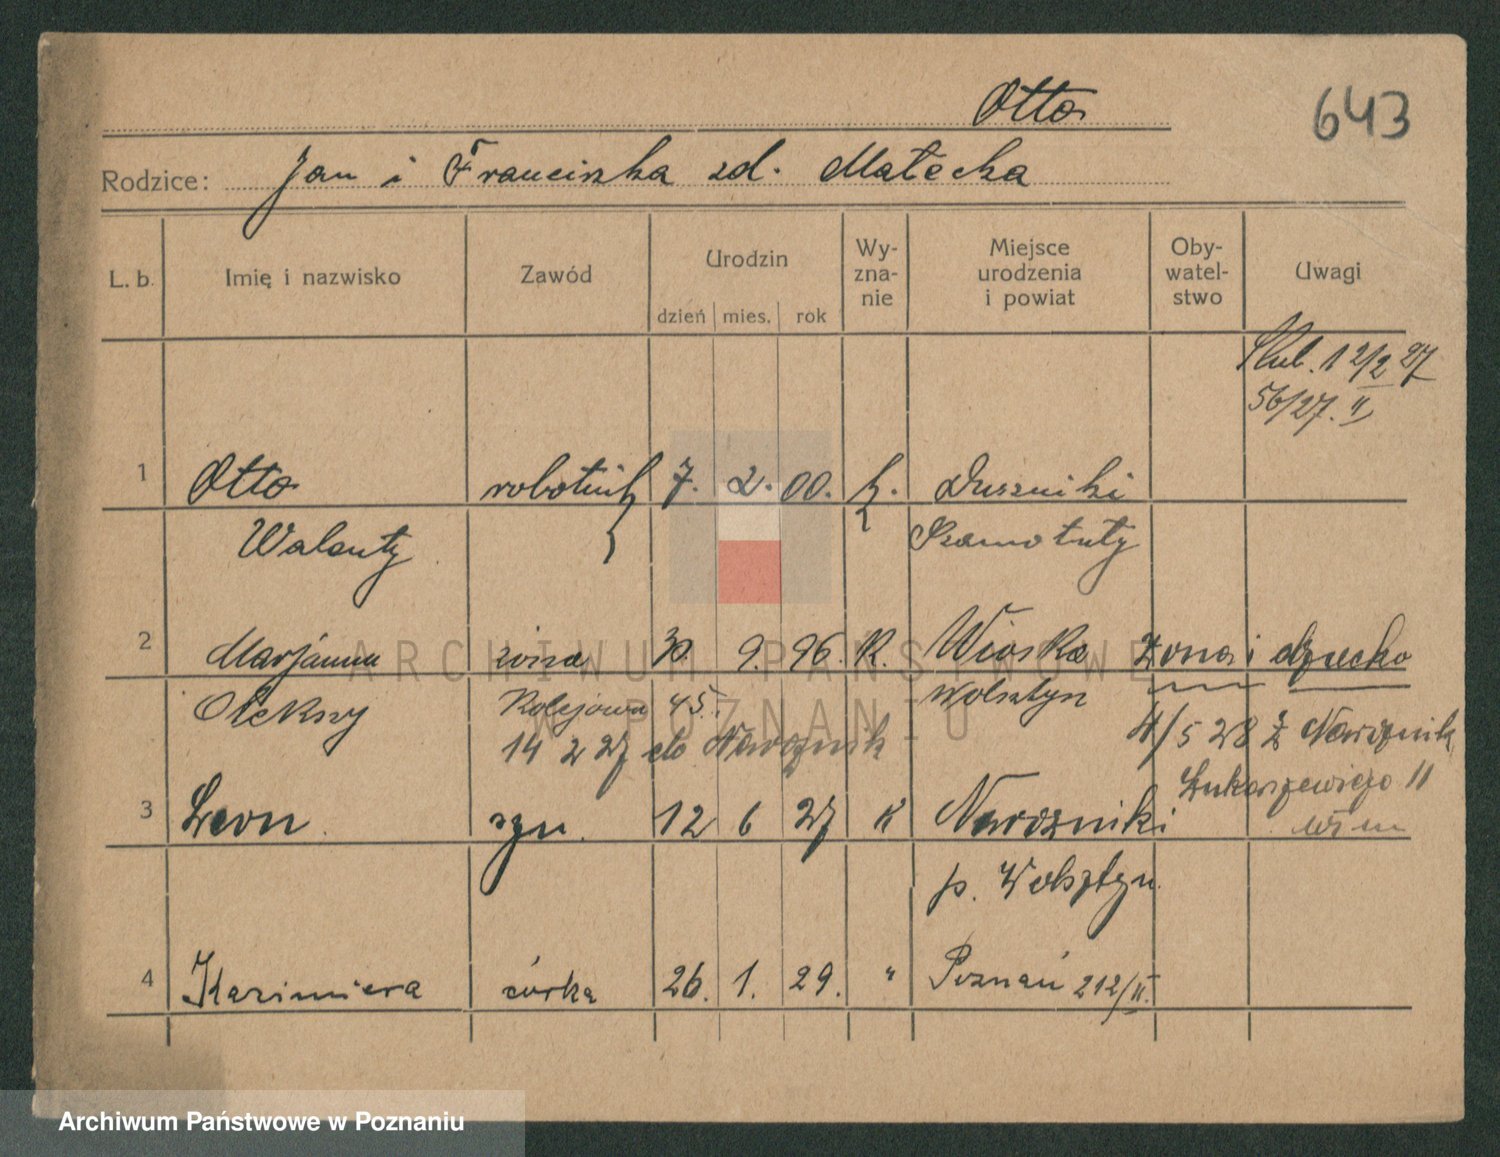 Otto
643
Rodzice: Jan i Franciszka zd. Małecka
L. b. Imię i nazwisko Zawód Urodzin Wy- Miejsce Oby- Uwagi
zna- urodzenia watel-
dzień mies. rok nie i powiat stwo
Ślub. 12/2 27
56/27. II
1 Otto robotnik 7. 2. 00. k. Duszniki
Walenty Szamotuły
2 Marjanna żona 30. 9. 96. k. Wioska żona i dziecko
Kolejowa 45. Wolsztyn
14 2 27 do 4/5 28 z
Łukaszewicza 11
3 Leon syn. 12 6 27 k
p. Wolsztyn.
4 Kazimiera córka 26. 1. 29. " Poznań 212/II.
ARCHIWUM PAŃSTWOWE
W POZNANIU
Archiwum Państwowe w Poznaniu